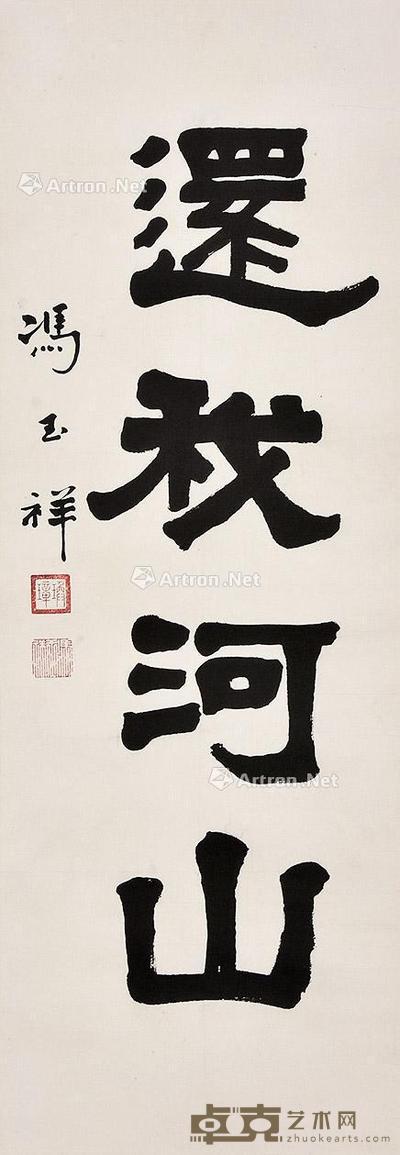 還我河山
馮玉祥
Artron.Net
Artron.Net
Artron.Net
卓克艺术网
zhuokearts.com